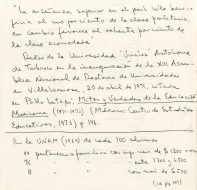 "La enseñanza superior en el país sólo bene-
ficia al uno por ciento de la clase proletaria,
en cambio favorece al sesenta por ciento de
la clase acomodada"
Rector de la Universidad "Juárez" Autónoma
de Tabasco en la inauguración de la XII Asam-
blea Nacional de Rectores de Universidades
en Villahermosa, 20 de abril de 1971, citado
en Pablo Latapí, Mitos y Verdades de la Educación
Mexicana (1971-1972) (México: Centro de Estudios
Educativos, 1973) p 196.
En la UNAM (1969) de cada 100 alumnos
pertenecían a familias con ingresos de $ 1200
76 " " " entre 1200 y 6500
8 " " " con más de 6500